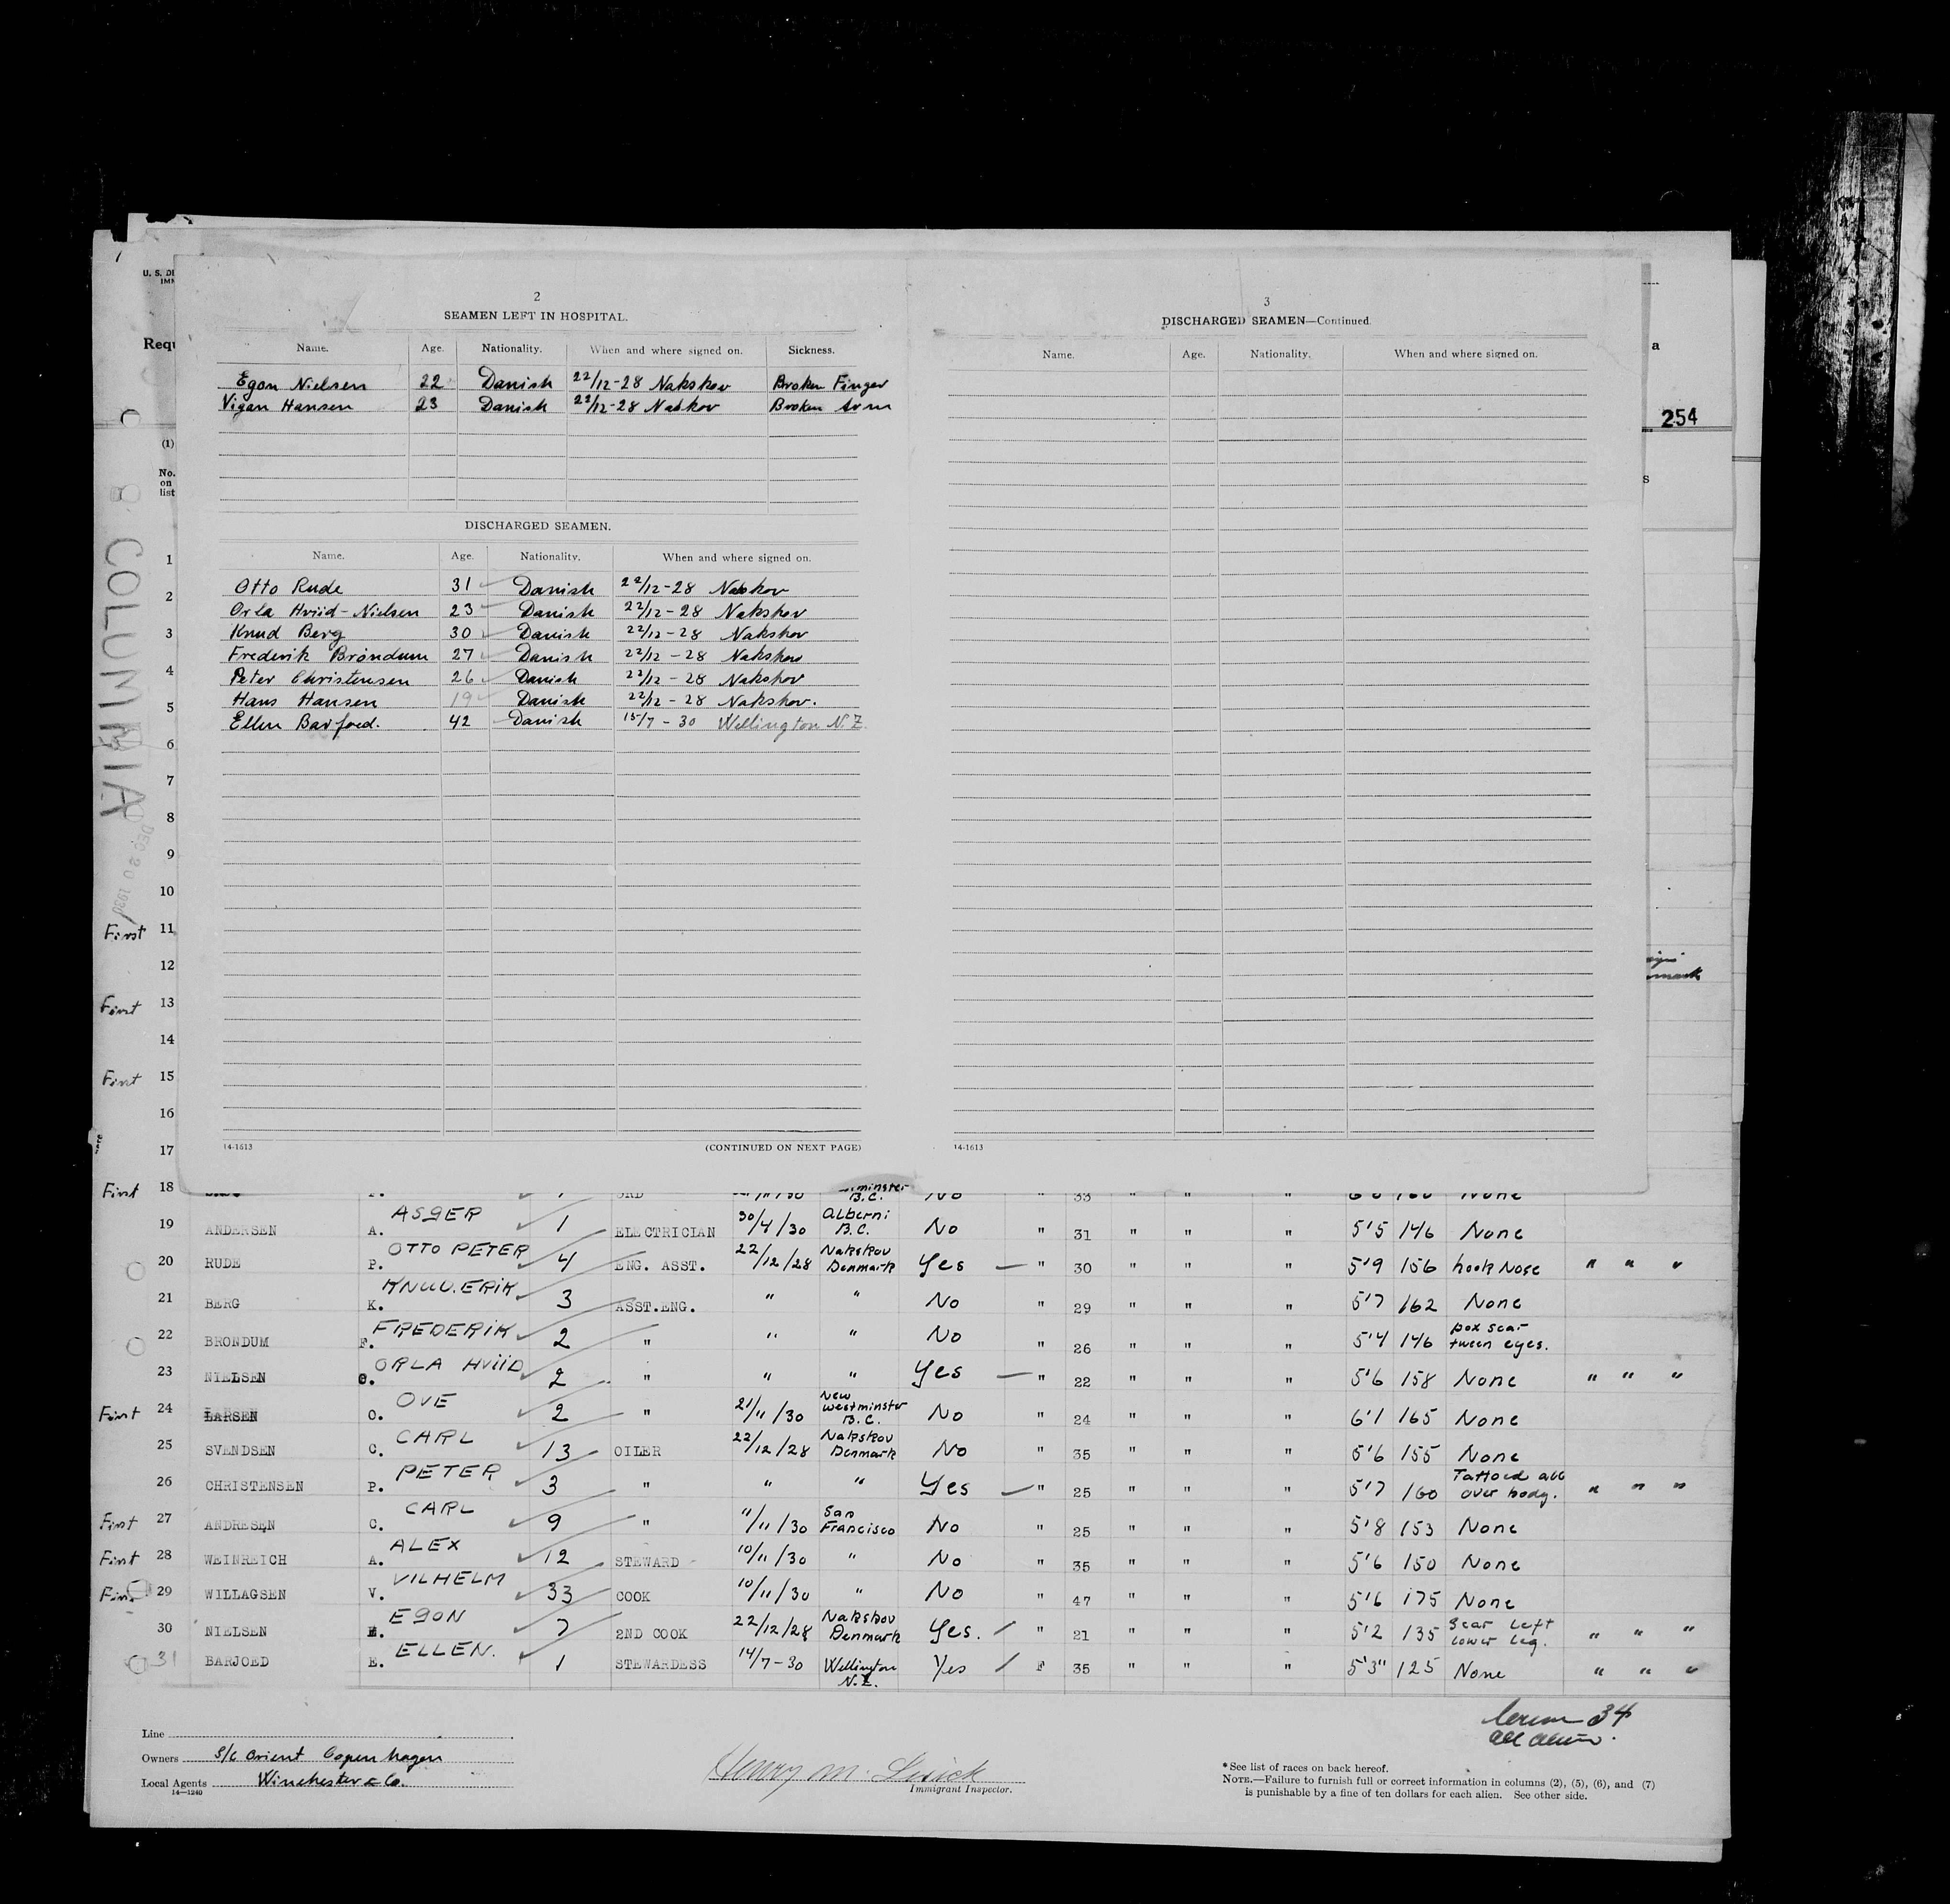 U. S. DE
IMM
Requ
(1)
No.
on
list
8 COLUMBIA
DEC 20 1930
2
SEAMEN LEFT IN HOSPITAL.
Name. Age. Nationality. When and where signed on. Sickness.
Egon Nielsen 22 Danish 22/12-28 Nakskov Broken Finger
Vigan Hansen 23 Danish 22/12-28 Nakskov Broken Arm
DISCHARGED SEAMEN.
Name. Age. Nationality. When and where signed on.
Otto Rude 31 Danish 22/12-28 Nakskov
Orla Hviid-Nielsen 23 Danish 22/12-28 Nakskov
Knud Berg 30 Danish 22/12-28 Nakskov
Frederik Bröndum 27 Danish 22/12-28 Nakskov
Peter Christensen 26 Danish 22/12-28 Nakskov
Hans Hansen 19 Danish 22/12-28 Nakskov.
Ellen Barfoed. 42 Danish 15/7-30 Wellington N.Z.
14-1613 (CONTINUED ON NEXT PAGE)
3
DISCHARGED SEAMEN—Continued.
Name. Age. Nationality. When and where signed on.
14-1613
a
254
s
1
2
3
4
5
6
7
8
9
10
First 11
12
First 13
14
First 15
16
17
First 18 3RD B.C. No " 33 " " " None
19 ANDERSEN A. ASGER 1 ELECTRICIAN 30/4/30 Alberni B.C. No " 31 " " " 5'5 146 None
20 RUDE P. OTTO PETER 4 ENG. ASST. 22/12/28 Nakskov Denmark Yes — " 30 " " " 5'9 156 hook Nose " " "
21 BERG K. KNUD. ERIK 3 ASST.ENG. " " No " 29 " " " 5'7 162 None
22 BRONDUM F. FREDERIK 2 " " " No " 26 " " " 5'4 146 pox scar tween eyes.
23 NIELSEN O. ORLA HViiD 2 " " " Yes — " 22 " " " 5'6 158 None " " "
First 24 LARSEN O. OVE 2 " 21/11/30 New Westminster B.C. No " 24 " " " 6'1 165 None
25 SVENDSEN C. CARL 13 OILER 22/12/28 Nakskov Denmark No " 35 " " " 5'6 155 None
26 CHRISTENSEN P. PETER 3 " " " Yes — " 25 " " " 5'7 160 Tattoed all over body. " " "
First 27 ANDRESEN C. CARL 9 " 11/11/30 San Francisco No " 25 " " " 5'8 153 None
First 28 WEINREICH A. ALEX 12 STEWARD 10/11/30 " No " 35 " " " 5'6 150 None
First 29 WILLAGSEN V. VILHELM 33 COOK 10/11/30 " No " 47 " " " 5'6 175 None
30 NIELSEN E. EGON 7 2ND COOK 22/12/28 Nakskov Denmark Yes. / " 21 " " " 5'2 135 Scar left lower leg. " " "
31 BARJOED E. ELLEN. 1 STEWARDESS 14/7-30 Wellington N.Z. Yes / F 35 " " " 5'3" 125 None " " "
34
all aliens.
Line
Owners S/C Orient Copenhagen
Local Agents Winchester & Co.
14—1240
Henry M.
Immigrant Inspector.
*See list of races on back hereof.
NOTE.—Failure to furnish full or correct information in columns (2), (5), (6), and (7)
is punishable by a fine of ten dollars for each alien. See other side.